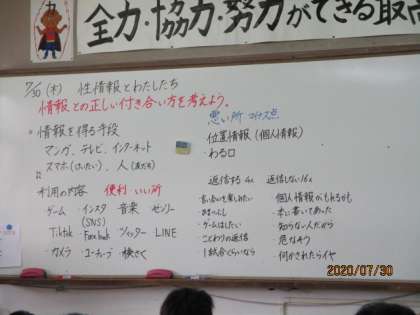 全力・協力・努力ができる取
7/30 (木) 性情報とわたしたち
情報との正しい付き合い方を考えよう。
情報を得る手段
マンガ、テレビ、インターネット
スマホ(けいたい)、人(友だち)
利用の内容 便利・いい所
ゲーム・インスタ(SNS) 音楽 ゼンリー
Tiktok・Facebook ツイッター LINE
・カメラ ユーチューブ 検さく
悪い所 マイナス点
位置情報(個人情報)
・わる口
返信する 4人 返信しない 16人
・ゲームはしたい
・こわりの返信
・1試合くらいなら
個人情報がもれるかも
・本に書いてあった
・知らない人だから
・危なそう
・何かされたらイヤ
2020/07/30